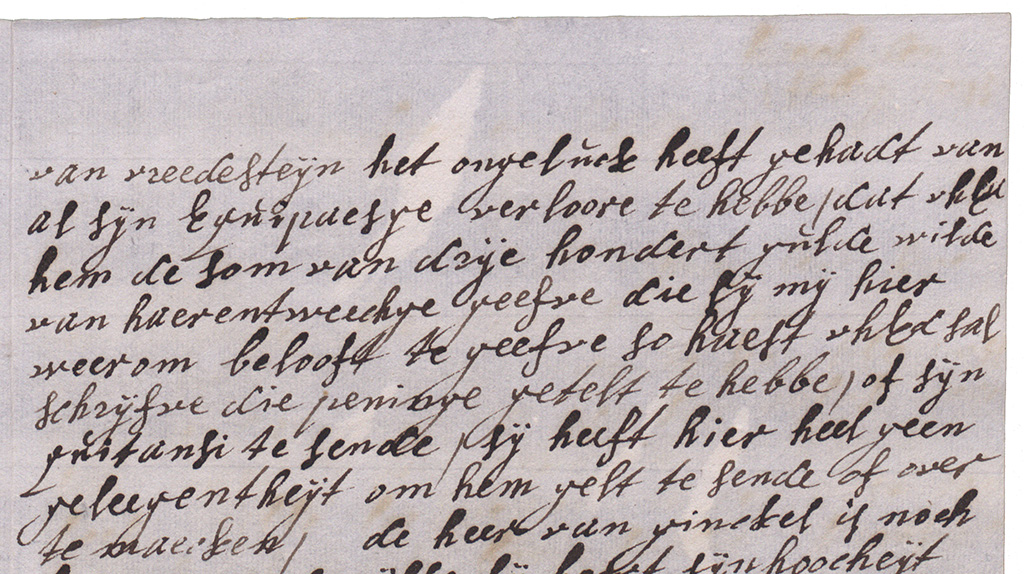 van vreedesteijn het ongeluck heeft gehadt van
al sijn Equipaesge verloore te hebbe, dat
hem de som van drije hondert gulde wilde
van haerentweechge geefve die sij mij hier
weerom belooft te geefve so haest sal
schrijfve die peninge getelt te hebbe, of sijn
quitansi te sende, sij heeft hier heel geen
geleegentheijt om hem gelt te sende of over
te maecken, de heer van ginckel is noch
sijn hoocheijt